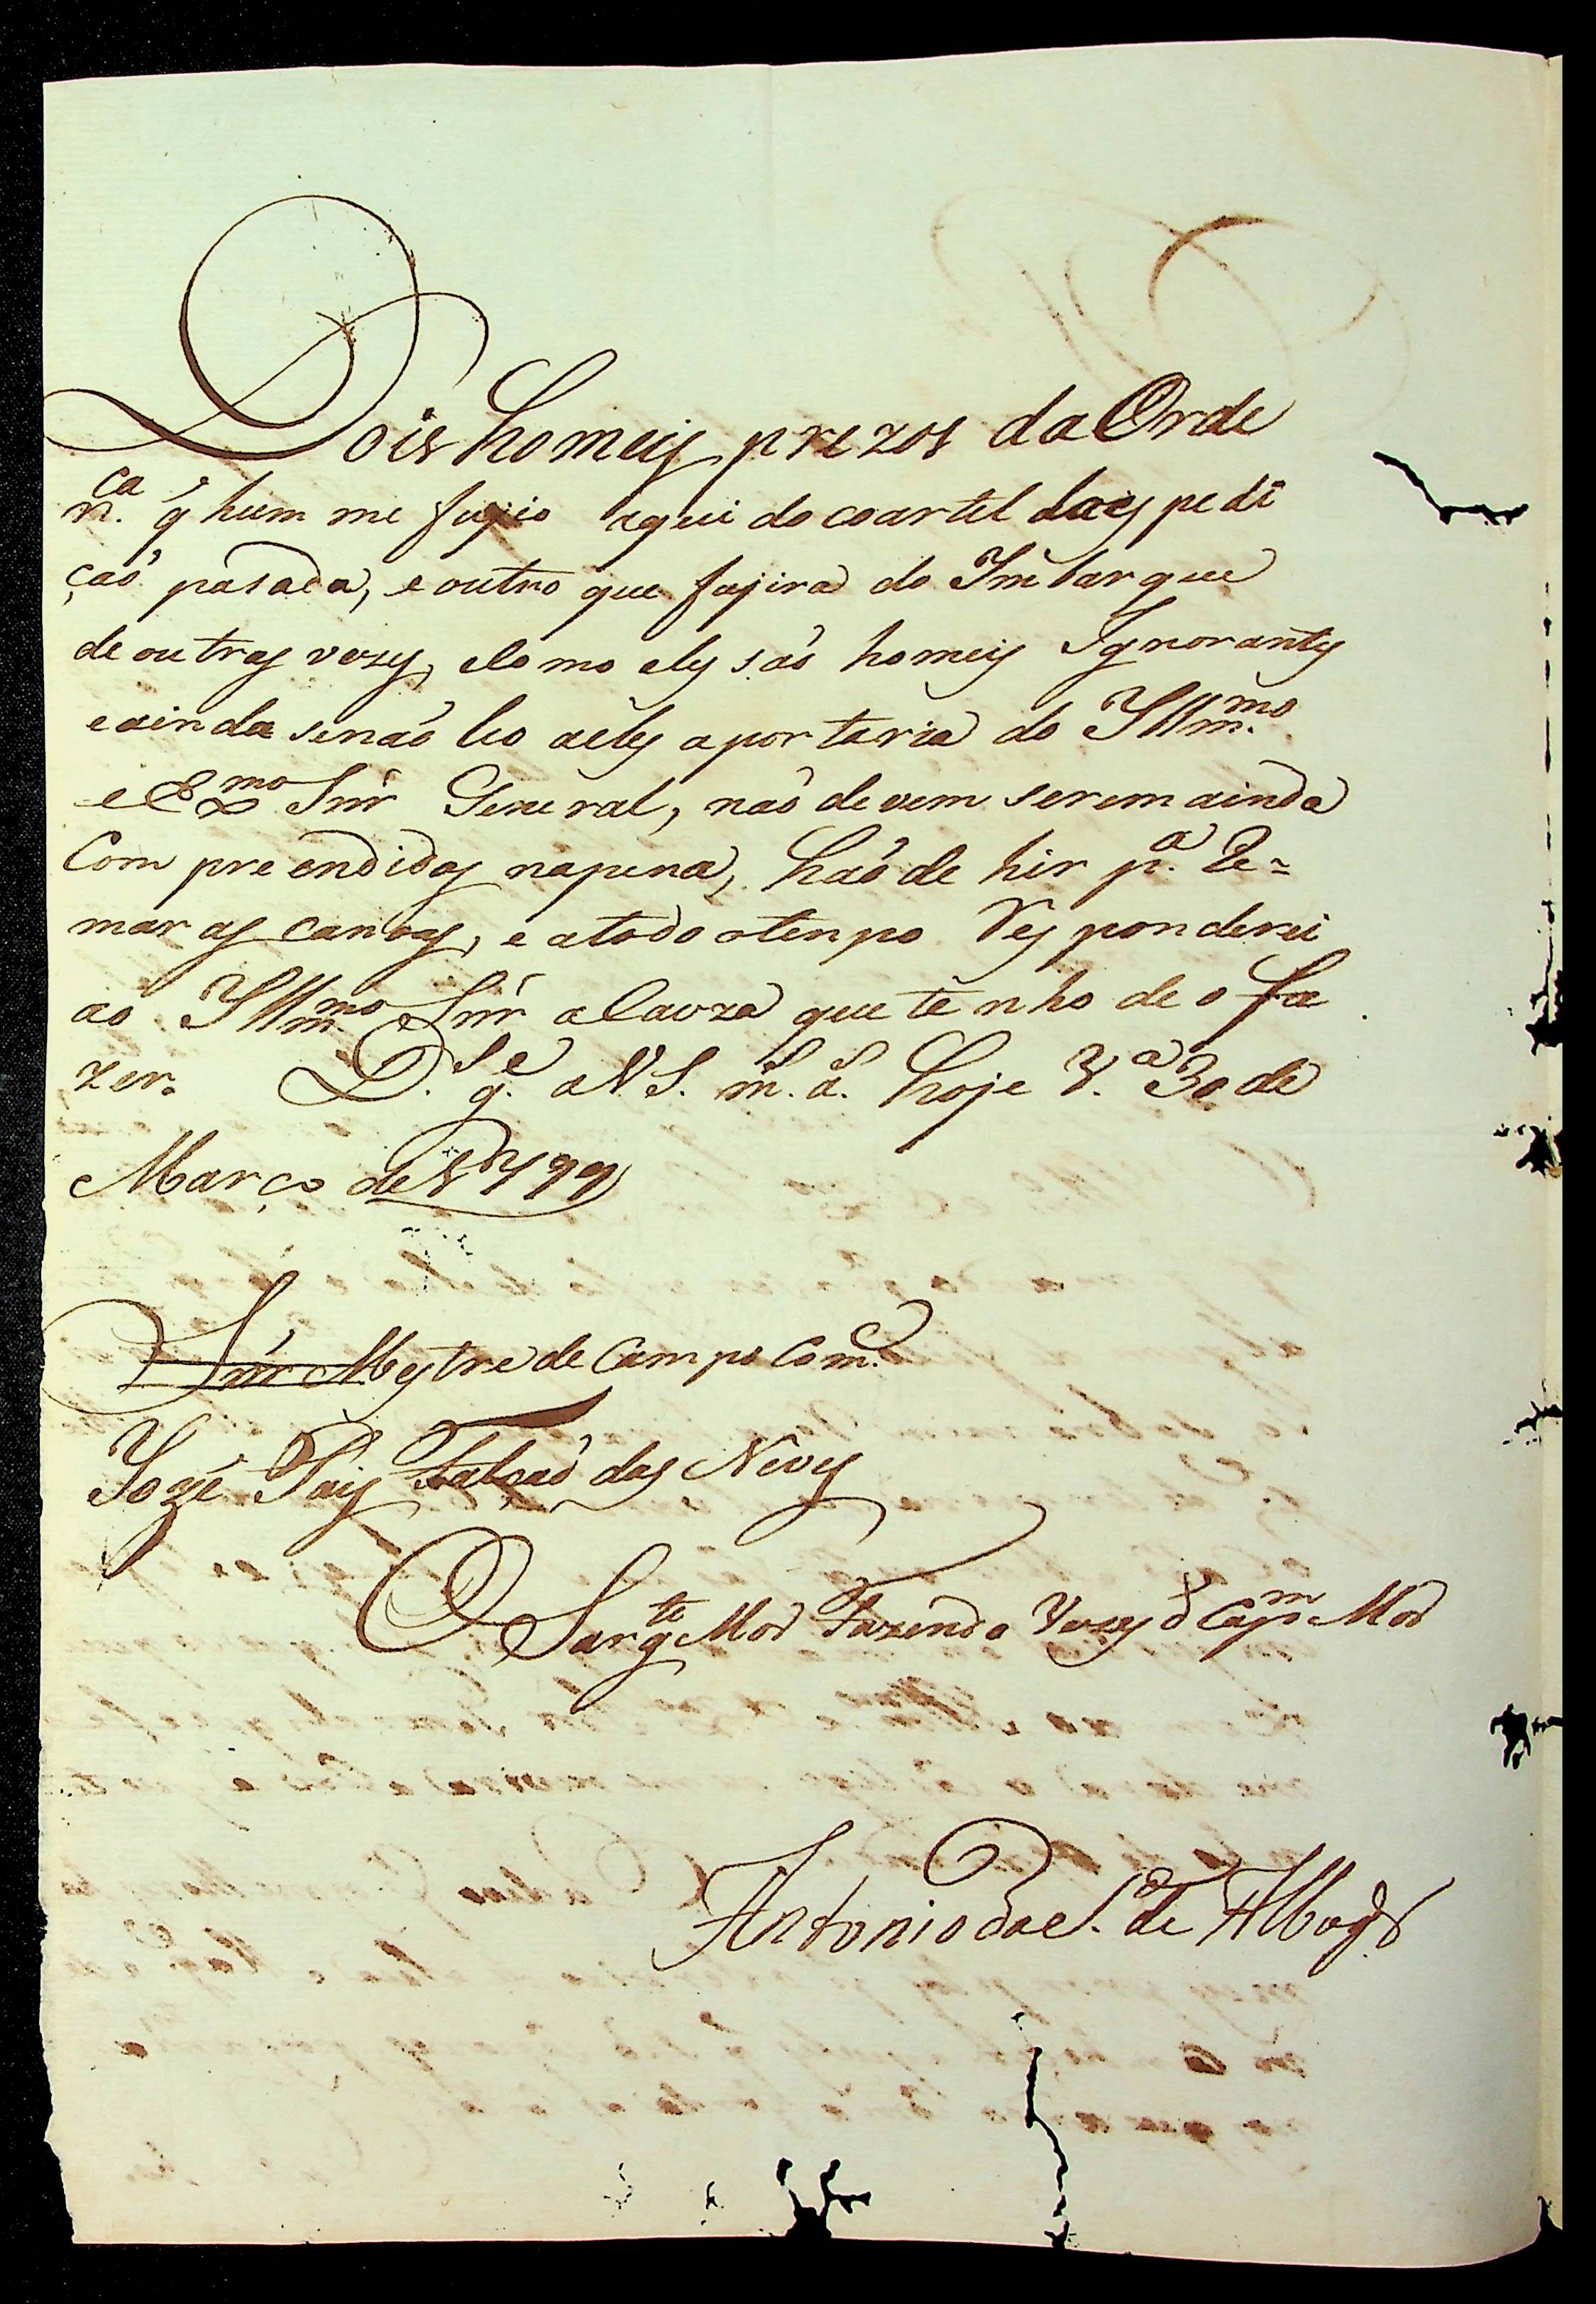 Dois homeis prezos da Orde
n.ça q̃ hum me fugio aqui do coartel daespedi
çaó pasada, e outro que fujira do Imbarque
de outras vezes, e Como eles saó homeis Ignorantes
e ainda senaó leo aeles a portaria do Illm.mo
e Exmo Snr̃ General, naó devem serem ainda
Compreendidos napena, haó de hir p.a Re=
mar as canoas, e atodo otenpo Responderei
ao Illm.mo Snr̃ a Cauza que tenho de o fa
zer. D.s g.e a V S. m.s a.s hoje V.a 30 de
Março de 1799
Snr̃ Mestre de Campo Com.e
Jozé Pais Falcaó das Neves
O Sargte Mor Fazendo Vezes d Capm Mor
Antonio Joe. de